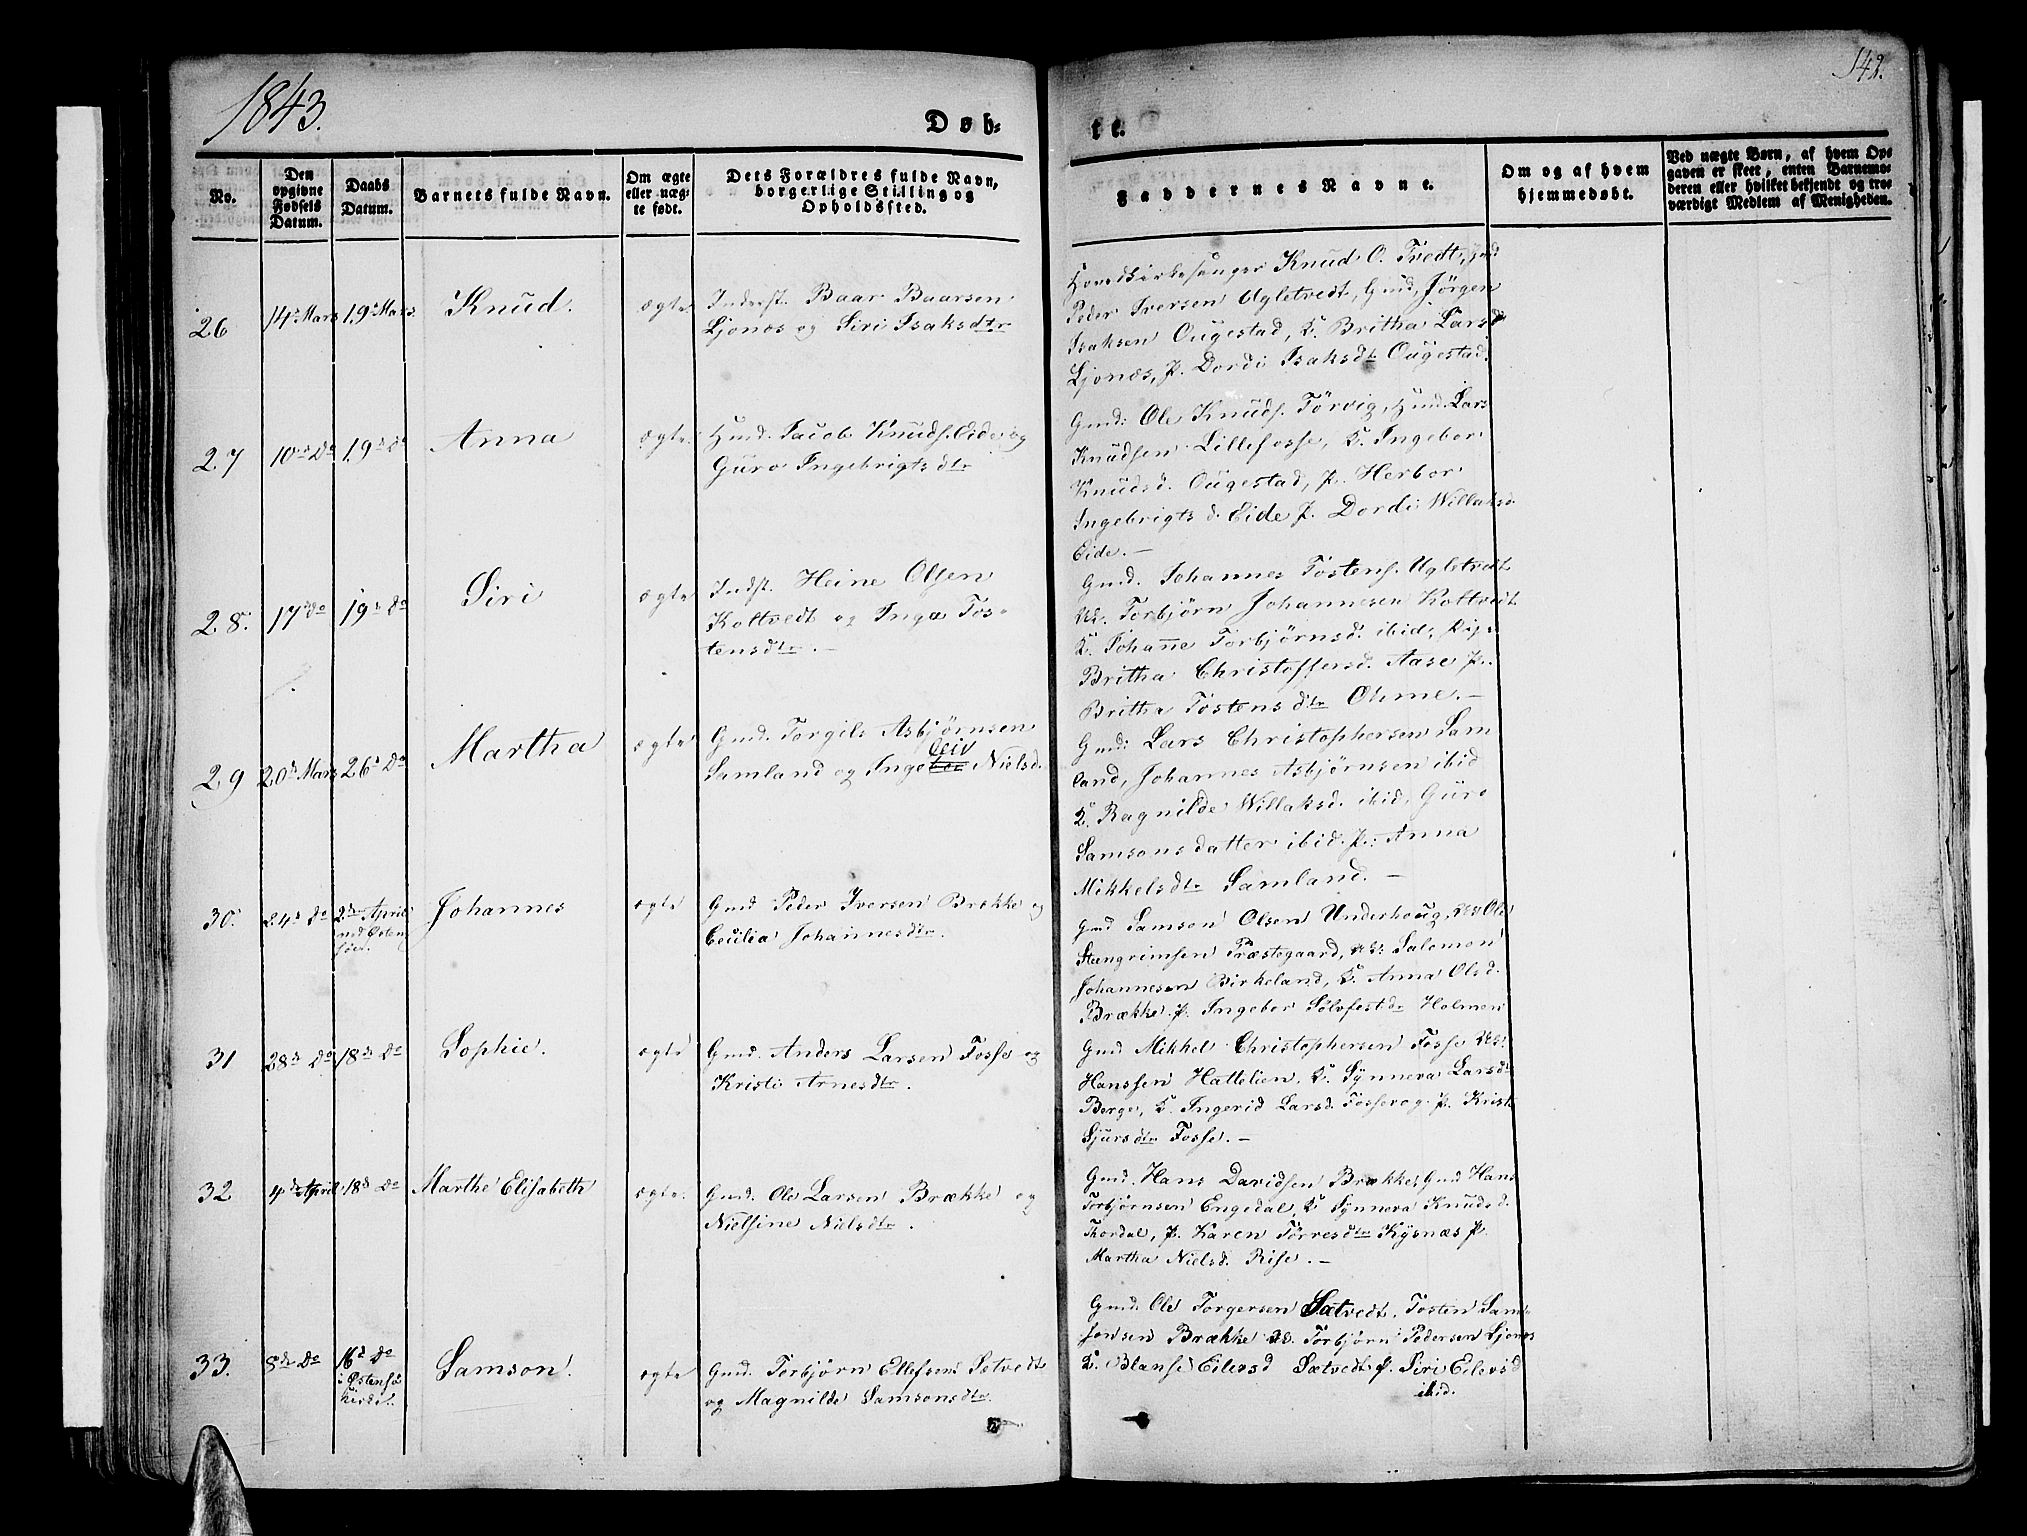 1843.
142.
Døb-
te.
No.
Den
opgivne
Fødsels
Datum.
Daabs
Datum.
Barnets fulde Navn.
Om ægte
eller uæg-
te født.
Dets Forældres fulde Navn,
borgerlige Stilling og
Opholdssted.
Faddernes Navne.
Om og af hvem
hjemmedøbt.
Ved uægte Børn, af hvem Op-
gaven er skeet, enten Barnemo-
deren eller hvilket bekjendt og tro-
værdigt Medlem af Menigheden.
26
14de Mars
19de Mars
Knud.
ægte
Inderst. Baar Baarsen
Ljonæs og Siri Isaksdtr
Hovedkirkesanger Knud O. Tvedt, Gmd
Peder Iversen Ugletvedt, Gmd, Jørgen
Isaksen Ougestad, K. Britha Larsd
Ljonæs, P. Dordi Isaksdtr Ougestad.
27
10de Do
19de Do
Anna
ægte
Hmd. Jacob Knuds. Eide og
Guro Ingebrigtsdtr
Gmd: Ole Knuds. Tørvig, Hmd. Lars
Knudsen Lillefosse, K. Ingebor
Knudsd. Ougestad, P. Herbor
Ingebrigtsd. Eide P. Dordi Willaksd.
Eide. —
28.
17de Do
19de Do
Siri
ægte
Indst. Heine Olsen
Koltvedt og Inga Tos-
tensdtr. —
Gmd. Johannes Tostens. Ugletvedt
Torbjørn Johannesen Koltvedt
K. Johanne Torbjørnsd. ibid; Pig:
Britha Christoffersd. Aase P.
Britha Tostensdtr Ohme. —
29
20de Mars
26de Do
Martha
ægte
Gmd. Torgils Asbjørnsen
leiv
Samland og Ingebor Nielsd.
Gmd: Lars Christophersen Sam
land, Johannes Asbjørnsen ibid
K. Ragnilde Willaksd. ibid, Guro
Samsonsdatter ibid. P: Anna
Mikkelsdtr Samland. —
30.
24de Do
2den April
ved Østen
søe.
Johannes
ægte
Gmd Peder Iversen Brække og
Cecilia Johannesdtr.
Gmd Samson Olsen Underhoug, Ole
Steengrimsen Præstegaard, Salomon
Johannesen Birkeland, K. Anna Olsd.
Brække. P. Ingebor Sølvfestdtr Holmen
31
28de Do
18de Do
Sophie.
ægte
Gmd. Anders Larsen Fosse og
Kristi Arnesdtr.
Gmd Mikkel Christophersen Fosse
Hanssen Hattelien. K. Synneva Larsd
Berge, K. Ingerid Larsd. Fossevog. P. Kristi
Sjursdtr Fosse. —
32
4de April
18de Do
Marthe Elisabeth
ægte
Gmd. Ole Larsen Brække og
Nielsine Nielsdtr.
Gmd. Hans Davidsen Brække, Gmd Hans
Torbjørnsen Engedal, K. Synneva Knudsd.
Thordal, P. Karen Tørresdtr Kysnæs P.
Martha Nielsd. Rise. —
33.
8de Do
16de Do
i Østensø
kirke.
Samson.
ægte
Gmd Torbjørn Ellefsen Sætvedt
og Magnilde Samsonsdtr.
Gmd. Ole Torgersen Sætvedt. Tosten Sam-
sonsen Brække Torbjørn Pedersen Ljonæs
K. Blanse Eilersd Sætvedt P. Siri Eilersd
ibid.